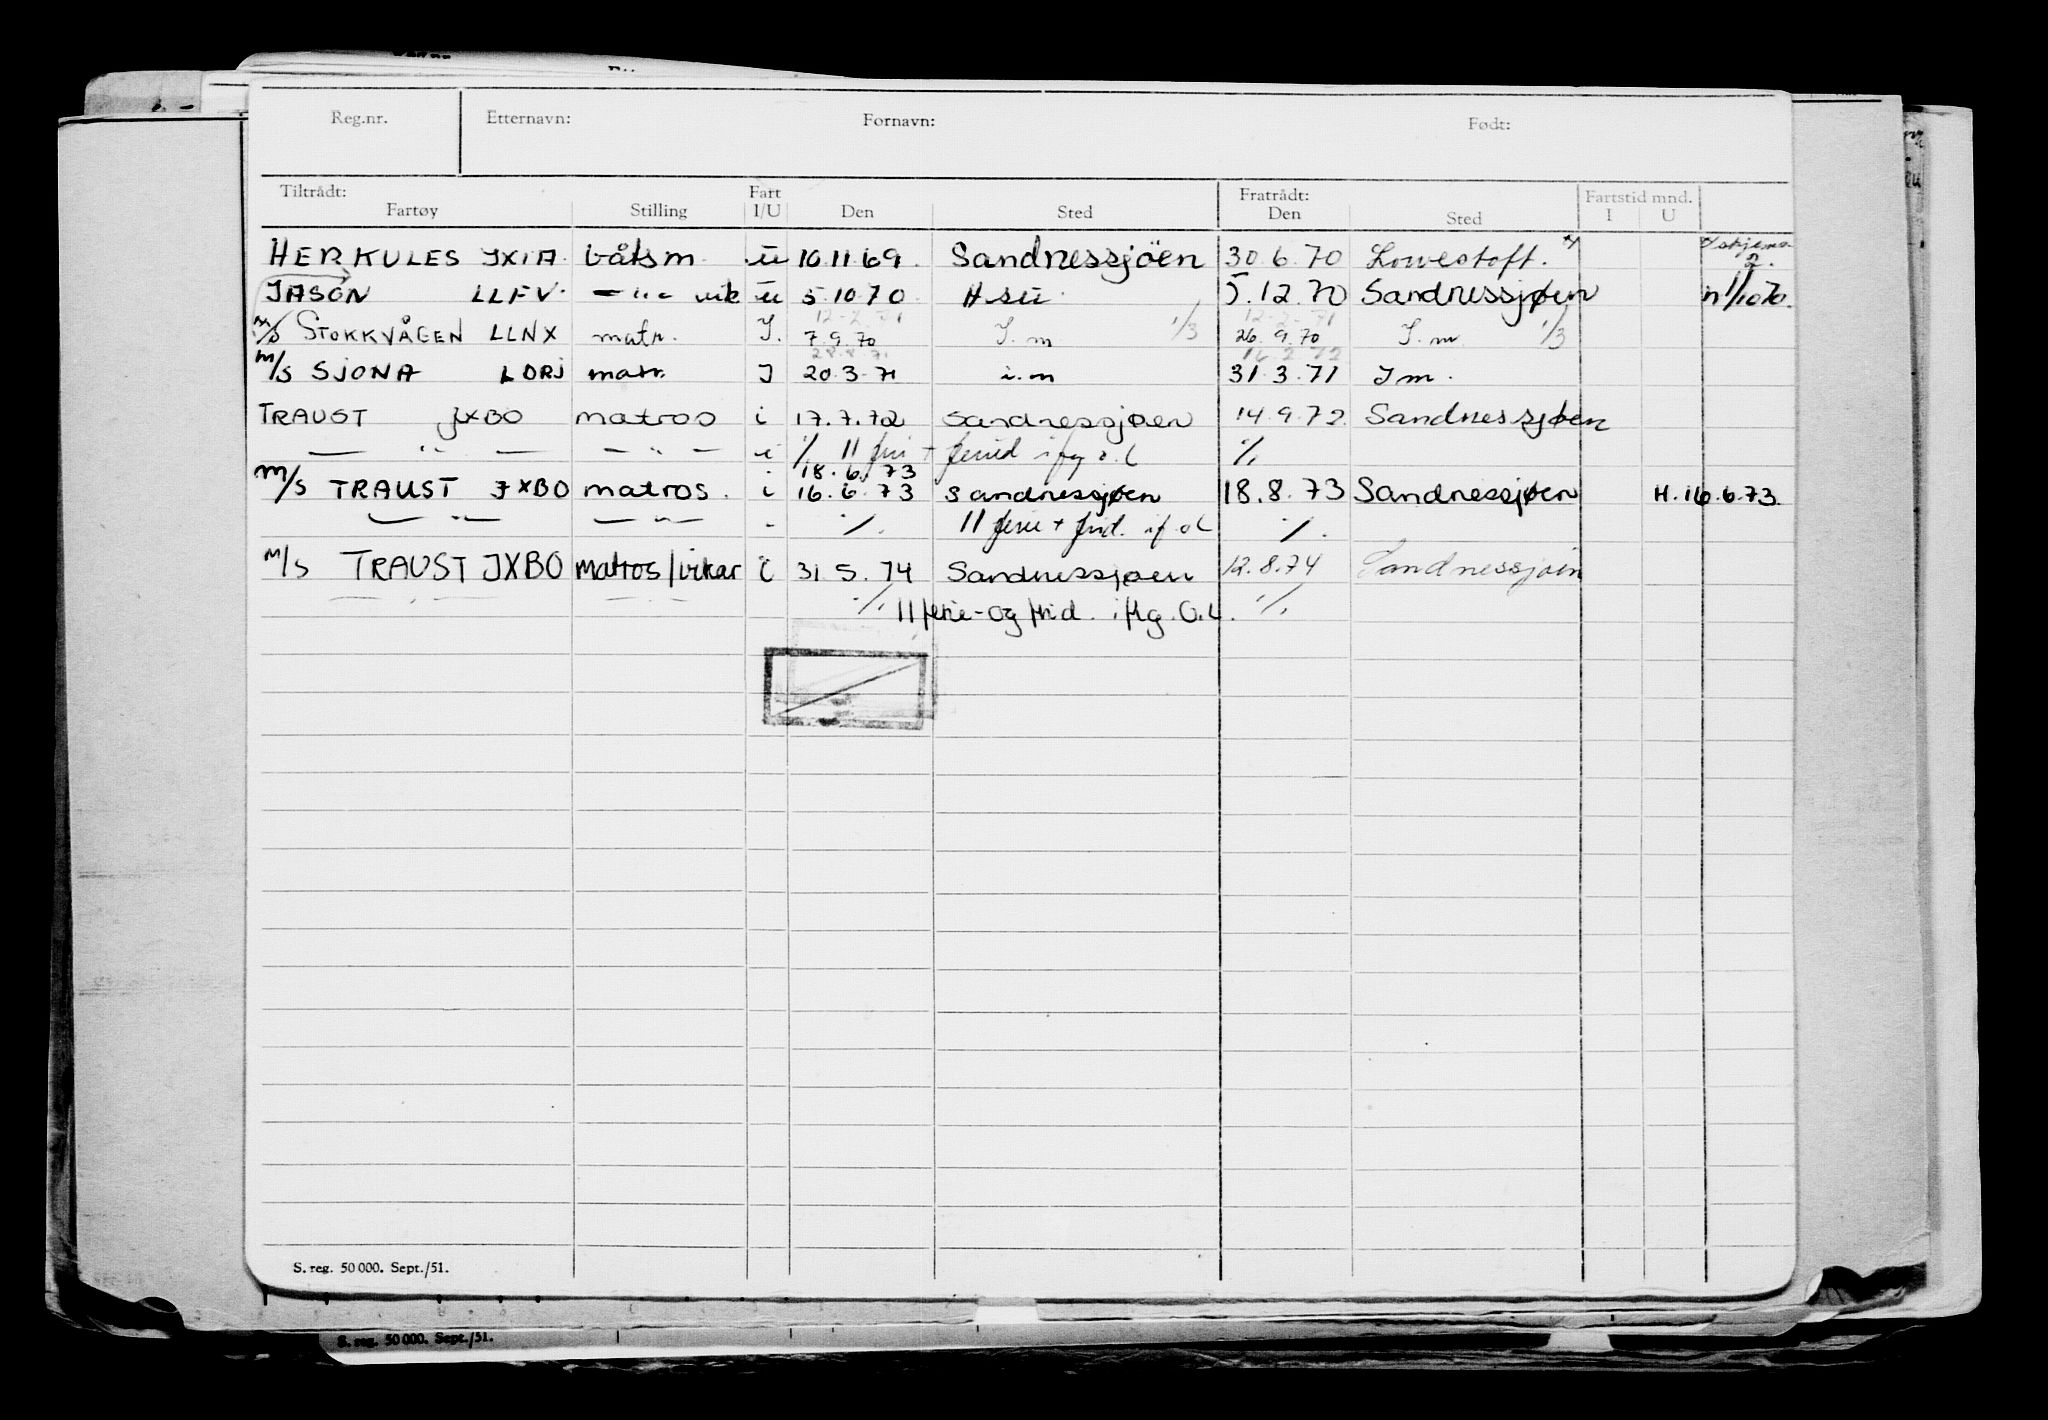 Reg.nr. Etternavn: Fornavn: Født:
Tiltrådt: Fart Fratrådt: Fartstid mnd.
Fartøy Stilling I/U Den Sted Den Sted I U
HERKULES JXIA båtsm. u 10.11 69 Sandnessjöen 30.6.70 Lowestoft. skjema 2.
JASON LLFV. -"- vik u 5.10.70 H.su 5.12.70 Sandnessjøen n 1/10 70.
12-2-71 12-2-71
m/s STOKKVÅGEN LLNX matr. I. 7.9.70 I.m 1/3 26.9.70 I.m 1/3
28.8.71 16.2.72
m/s SJONA LDRJ matr. I 20.3.71 i.m 31.3.71 Im.
TRAUST JXBO matros i 17.7.72 Sandnessjøen 14.9.72 Sandnessjøen
— " — — " — i ./. 11 + i ./.
18.6.73
m/s TRAUST JXBO matros. i 16.6.73 Sandnessjøen 18.8.73 Sandnessjøen H. 16.6.73.
— " — — " — - ./. 11 ferie + ./.
m/s TRAUST JXBO matros/vikar i 31.5.74 Sandnessjøen 12.8.74 Sandnessjøen
— " — — " — ./. 11 ferie- og frid. iflg. O.L. ./.
S. reg. 50 000. Sept./51.
S. reg. 50 000. Sept./51.